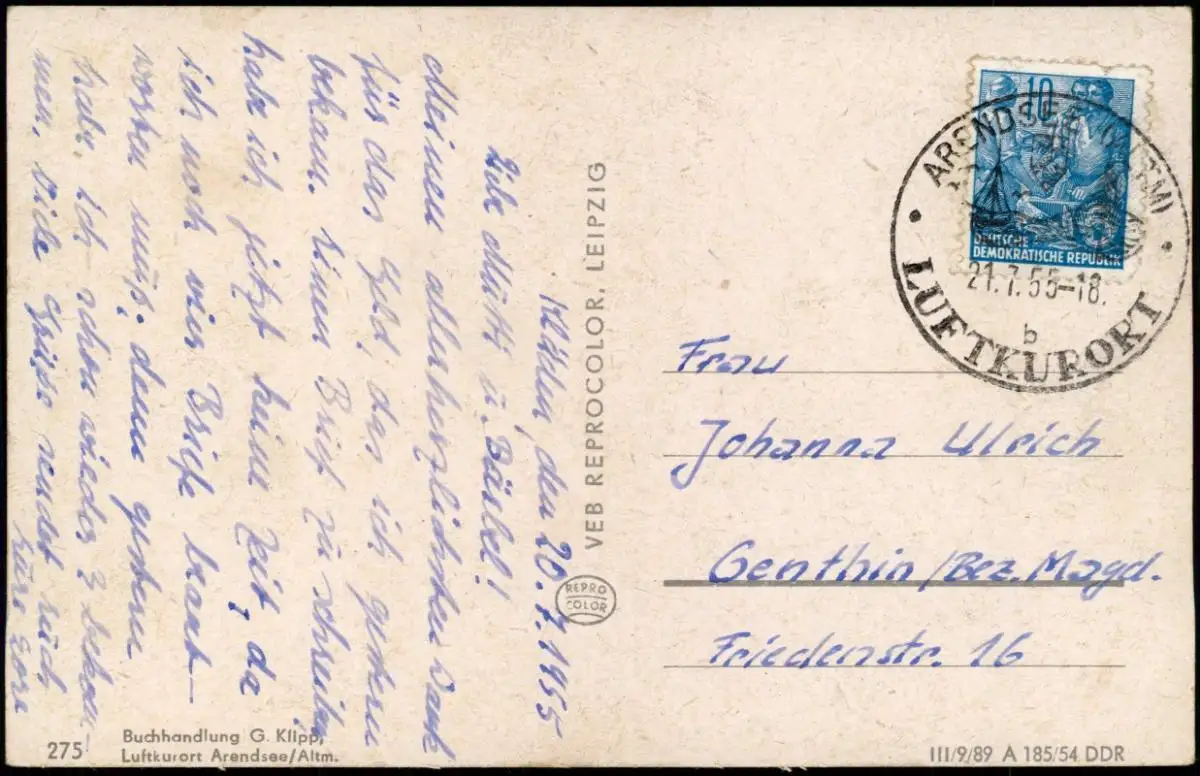 Kläden, den 20.7.1955
Liebe Mutti u. Bärbel!
Meinen allerherzlichsten Dank
für das Geld, das ich gestern
bekam. Einen Brief zu schreiben
habe ich jetzt keine Zeit, da
ich noch vier Briefe beant-
worten muß, denn gestern
habe ich schon wieder 3 bekom-
men. Viele Grüße sendet Euch
Eure Lore
VEB REPROCOLOR, LEIPZIG
REPRO
COLOR
275
Buchhandlung G. Klipp,
Luftkurort Arendsee/Altm.
10
DEUTSCHE
DEMOKRATISCHE REPUBLIK
ARENDSEE (ALTM)
21.7.55-18.
b
LUFTKURORT
Frau
Johanna Ulrich
Genthin/Bez. Magd.
Friedenstr. 16
III/9/89 A 185/54 DDR